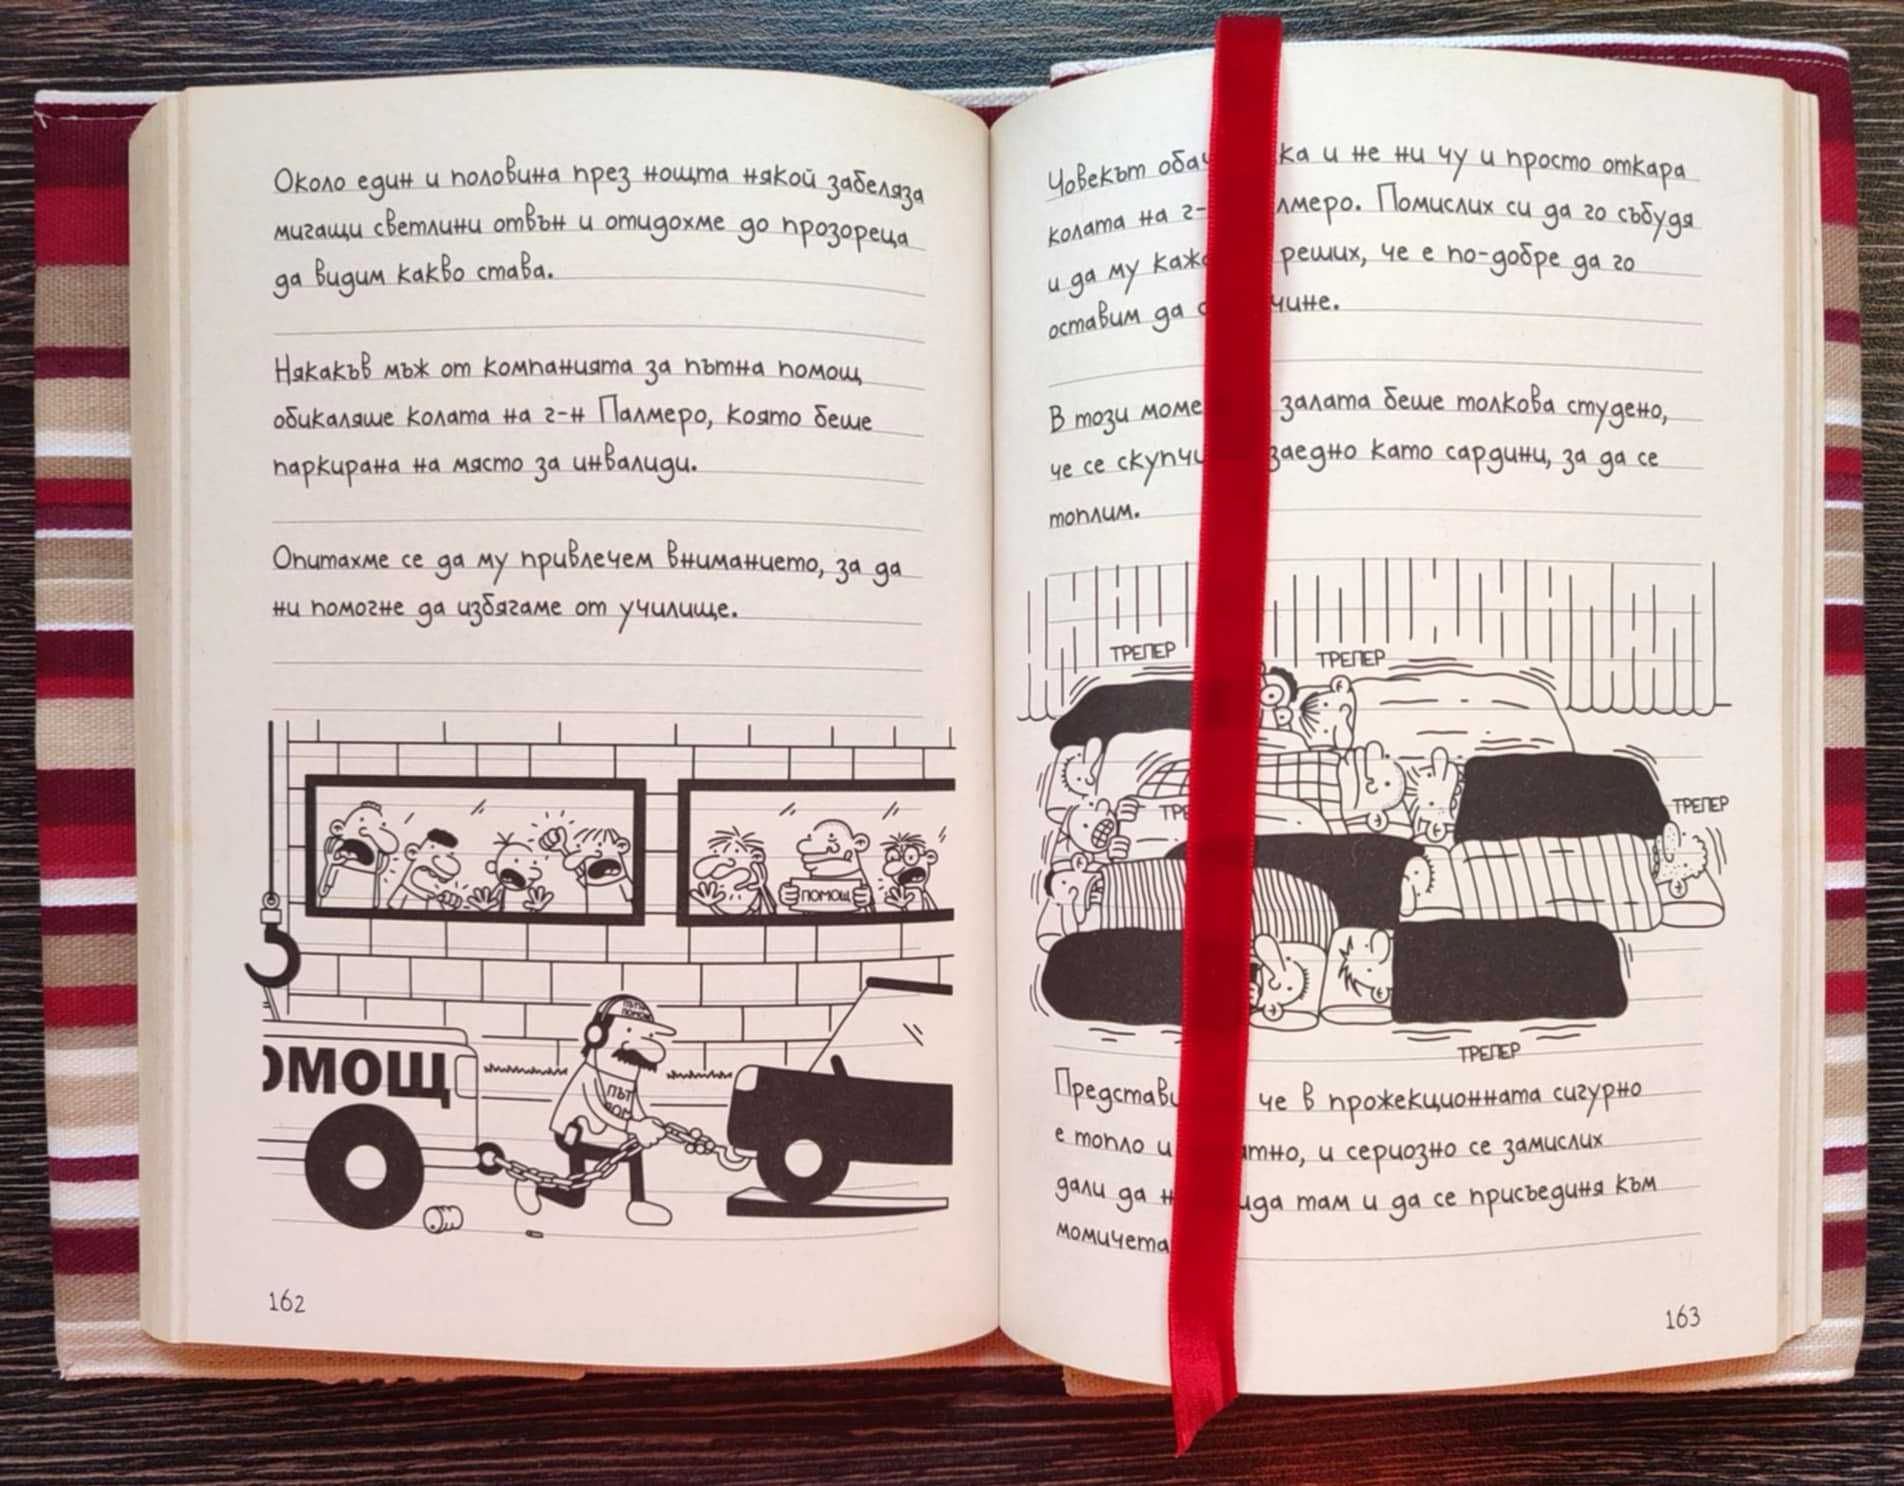 Около един и половина през нощта някой забеляза
мигащи светлини отвън и отидохме до прозореца
да видим какво става.
Някакъв мъж от компанията за пътна помощ
обикаляше колата на г-н Палмеро, която беше
паркирана на място за инвалиди.
Опитахме се да му привлечем вниманието, за да
ни помогне да избягаме от училище.
ПОМОЩ
ПЪТНА
ПОМОЩ
ОМОЩ
ПЪТ
ПОМ
162
Човекът ка и не ни чу и просто откара
колата на г- лмеро. Помислих си да го събудя
и да му реших, че е по-добре да го
оставим да чине.
В този залата беше толкова студено,
че се заедно като сардини, за да се
топлим.
ТРЕПЕР
ТРЕПЕР
ТРЕ
ТРЕПЕР
ТРЕПЕР
че в прожекционната сигурно
е топло и и сериозно се замислих
дали да там и да се присъединя към
момичета
163